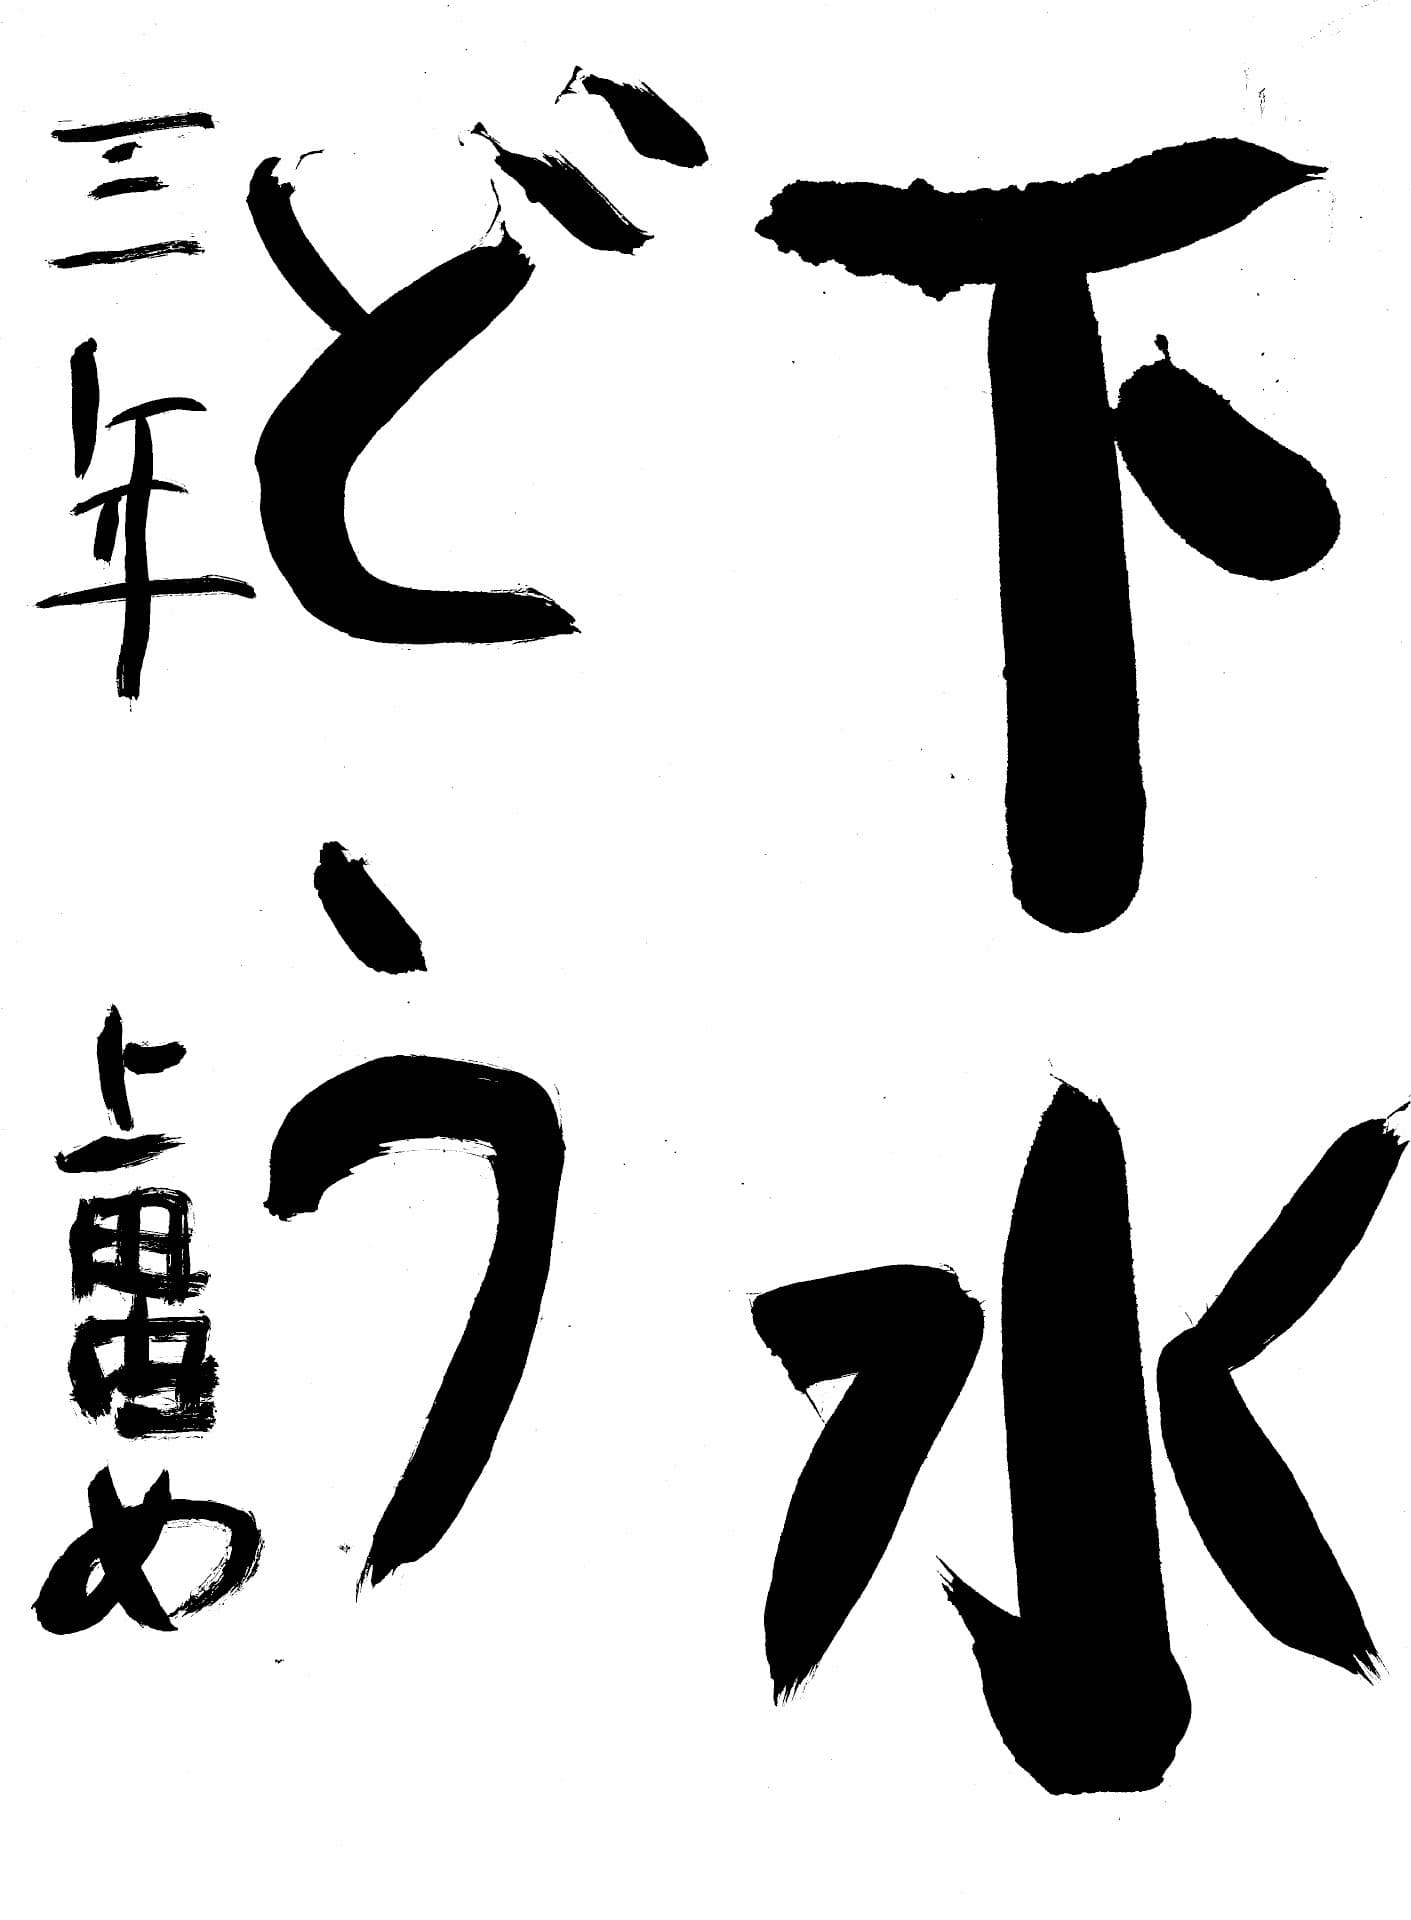 下水
どう
三年 上 め